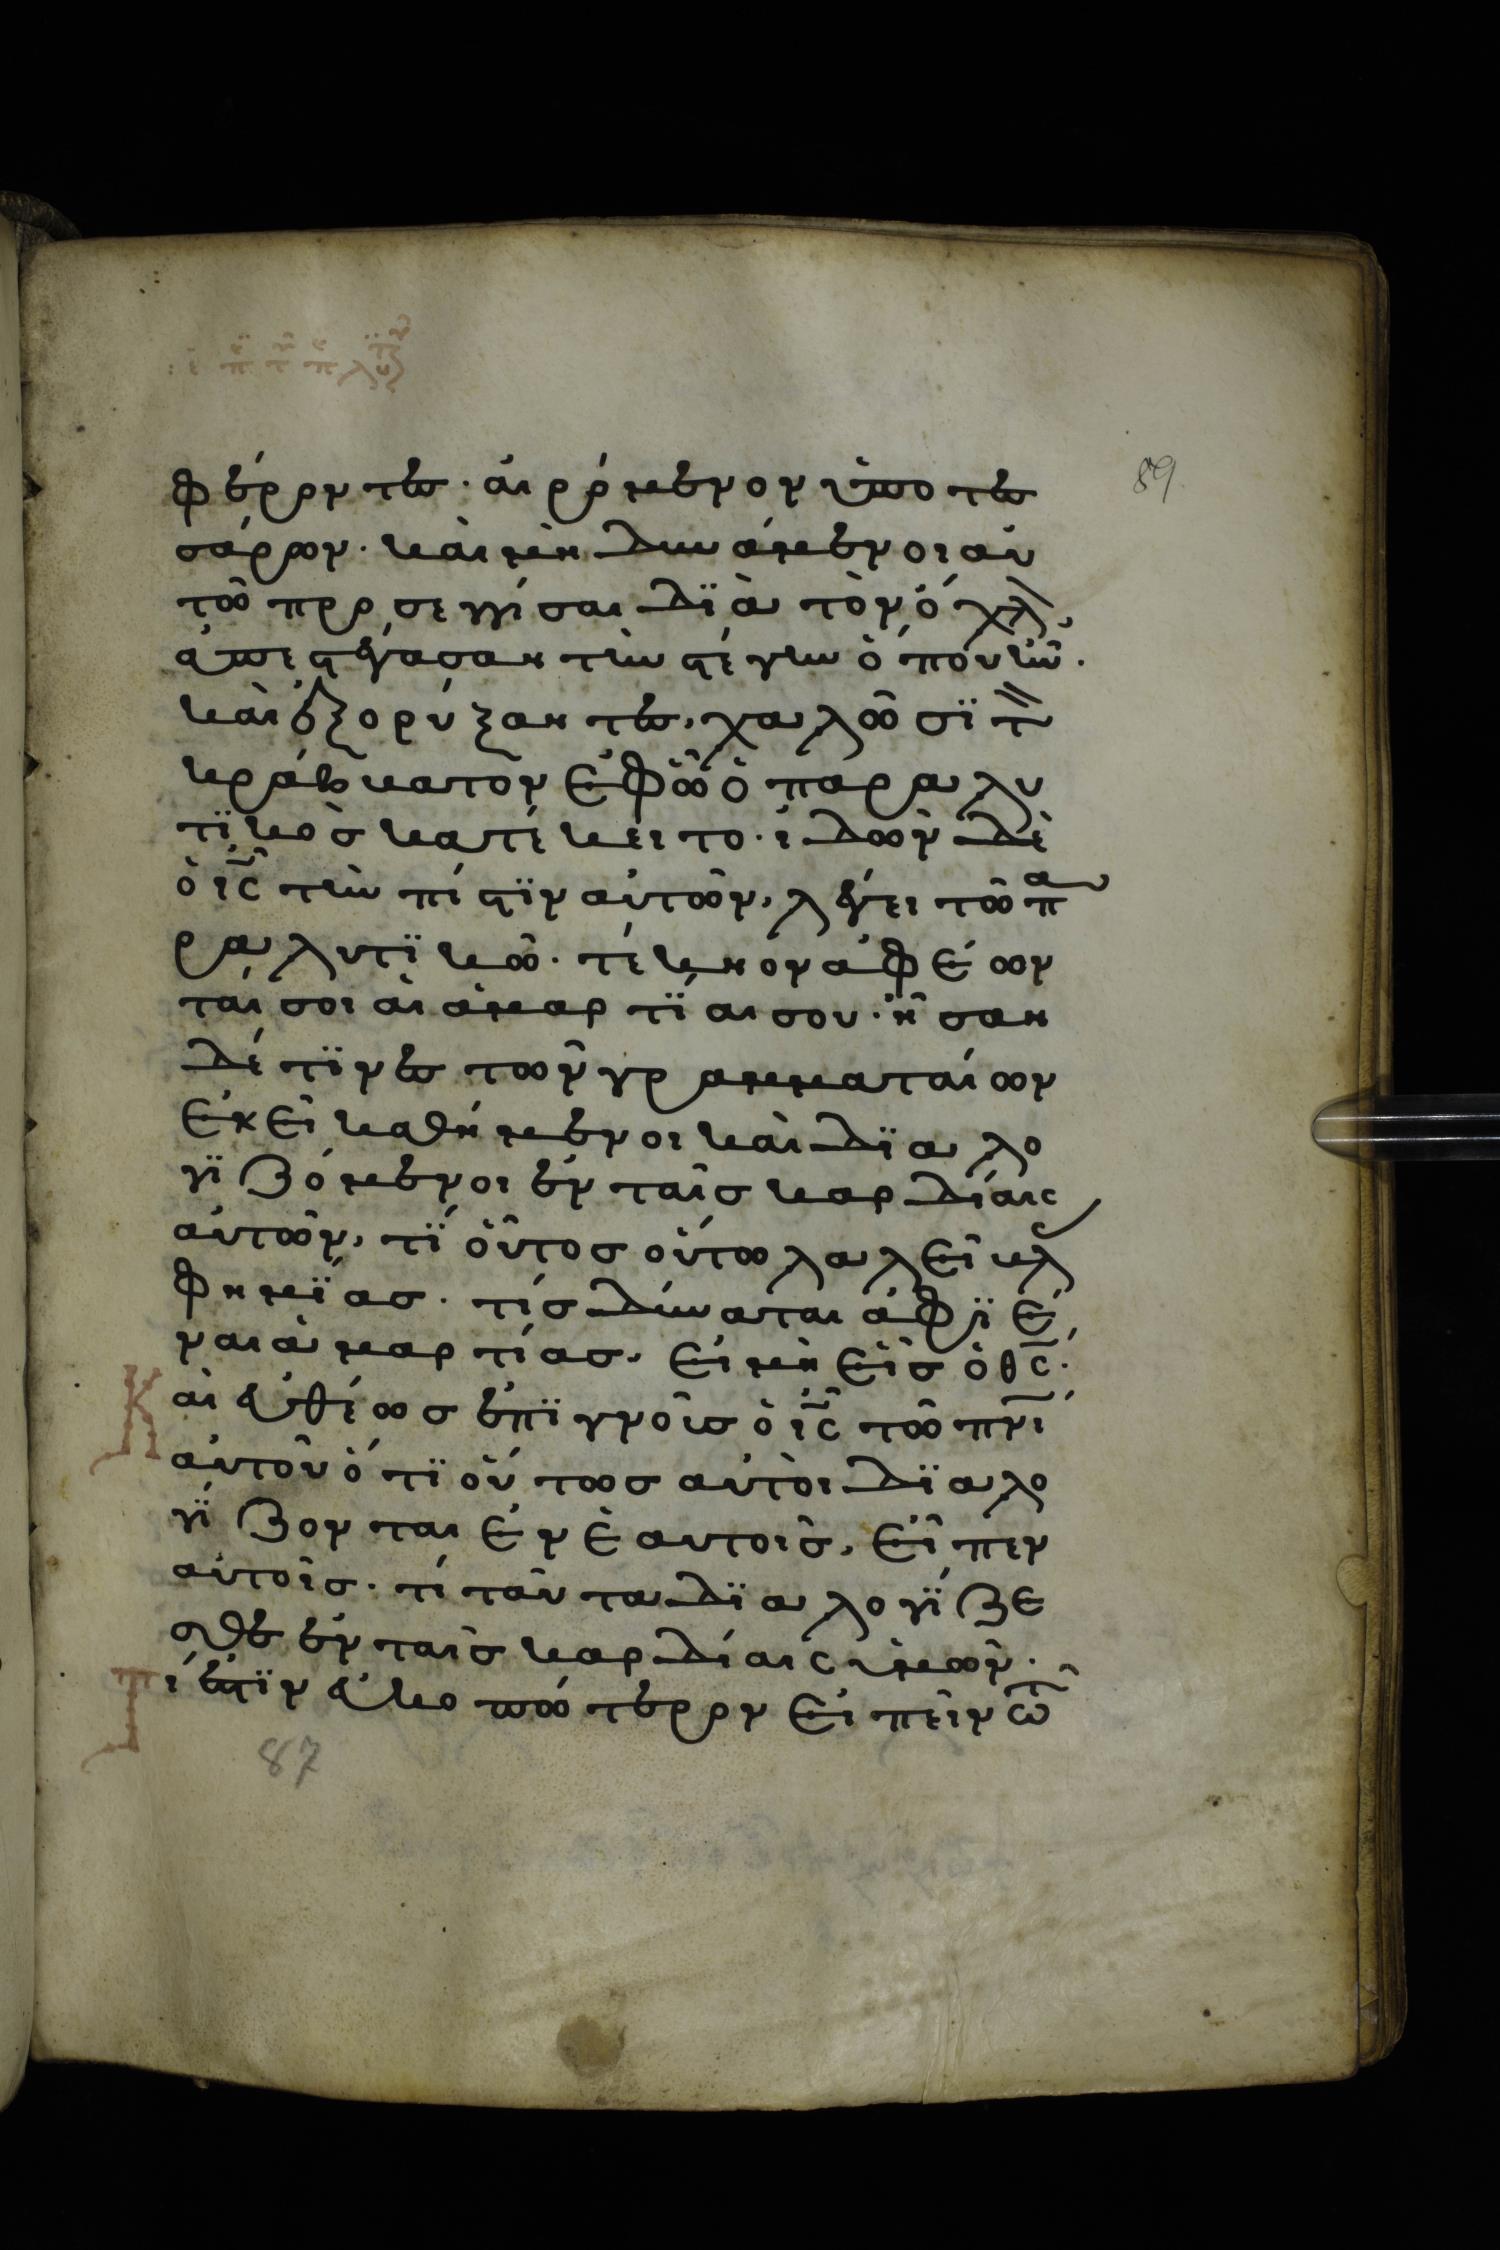 89
φέροντες· αἰρόμενον ὑπο τεσ
σάρων· καὶ μὴ δυνάμενοι αὐ
τῶ προσεγγίσαι διὰ τὸν ὄχλ
ἀπεστέγασαν τὴν στέγην ὅπου ἦν·
καὶ ἐξορύξαντες, χαλῶσϊ τ
κράββατον ἐφ ὧ ὁ παραλυ
τϊκὸσ κατέκειτο· ἰδὼν δὲ
ὁ ις τὴν πίστϊν αὐτῶν, λέγει τῶ πα
ραλυτϊκῶ· τέκνον ἀφέων
ταί σοι αἱ ἁμαρτϊαι σου· ἦσαν
δέ τϊνες τῶν γραμματαίων
ἐκεῖ καθήμενοι καὶ δϊαλο
γϊζόμενοι ἐν ταῖσ καρδίαις
αὐτῶν, τϊ οὗτοσ οὕτω λαλεῖ βλ
φημϊασ· τίσ δύναται ἀφϊέ
ναι ἁμαρτίασ, εἰ μὴ εἷσ ὁ θς·
Καὶ εὐθέωσ ἐπϊγνοῦσ ὁ ις τῶ πνι
αὐτοῦ ὅτϊ οὕτωσ αὐτοὶ δϊαλο
γϊζονται ἐν ἑαυτοῖσ, εἶπεν
αὐτοῖσ· τί ταῦτα δϊαλογϊζε
σθε ἐν ταῖσ καρδίαις ὑμῶν·
Τί ἐστϊν εὐκοπώτερον εἰπεῖν τω
87